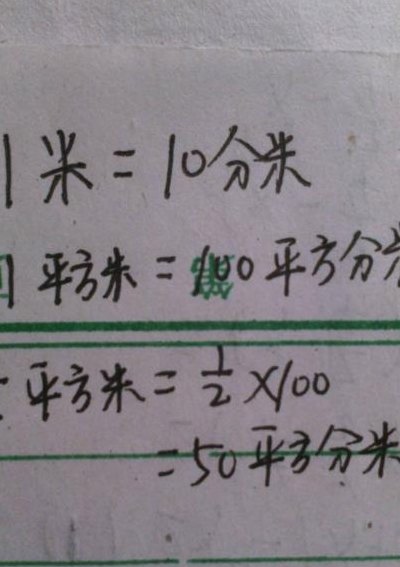 1米=10分米
1平方米=100平方分米
平方米=1/2×100
=50平方分米